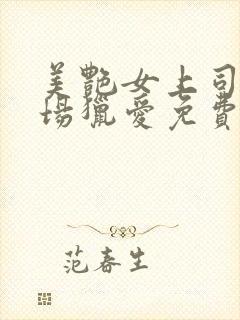 美艷女上司
場獵愛免費
范春生